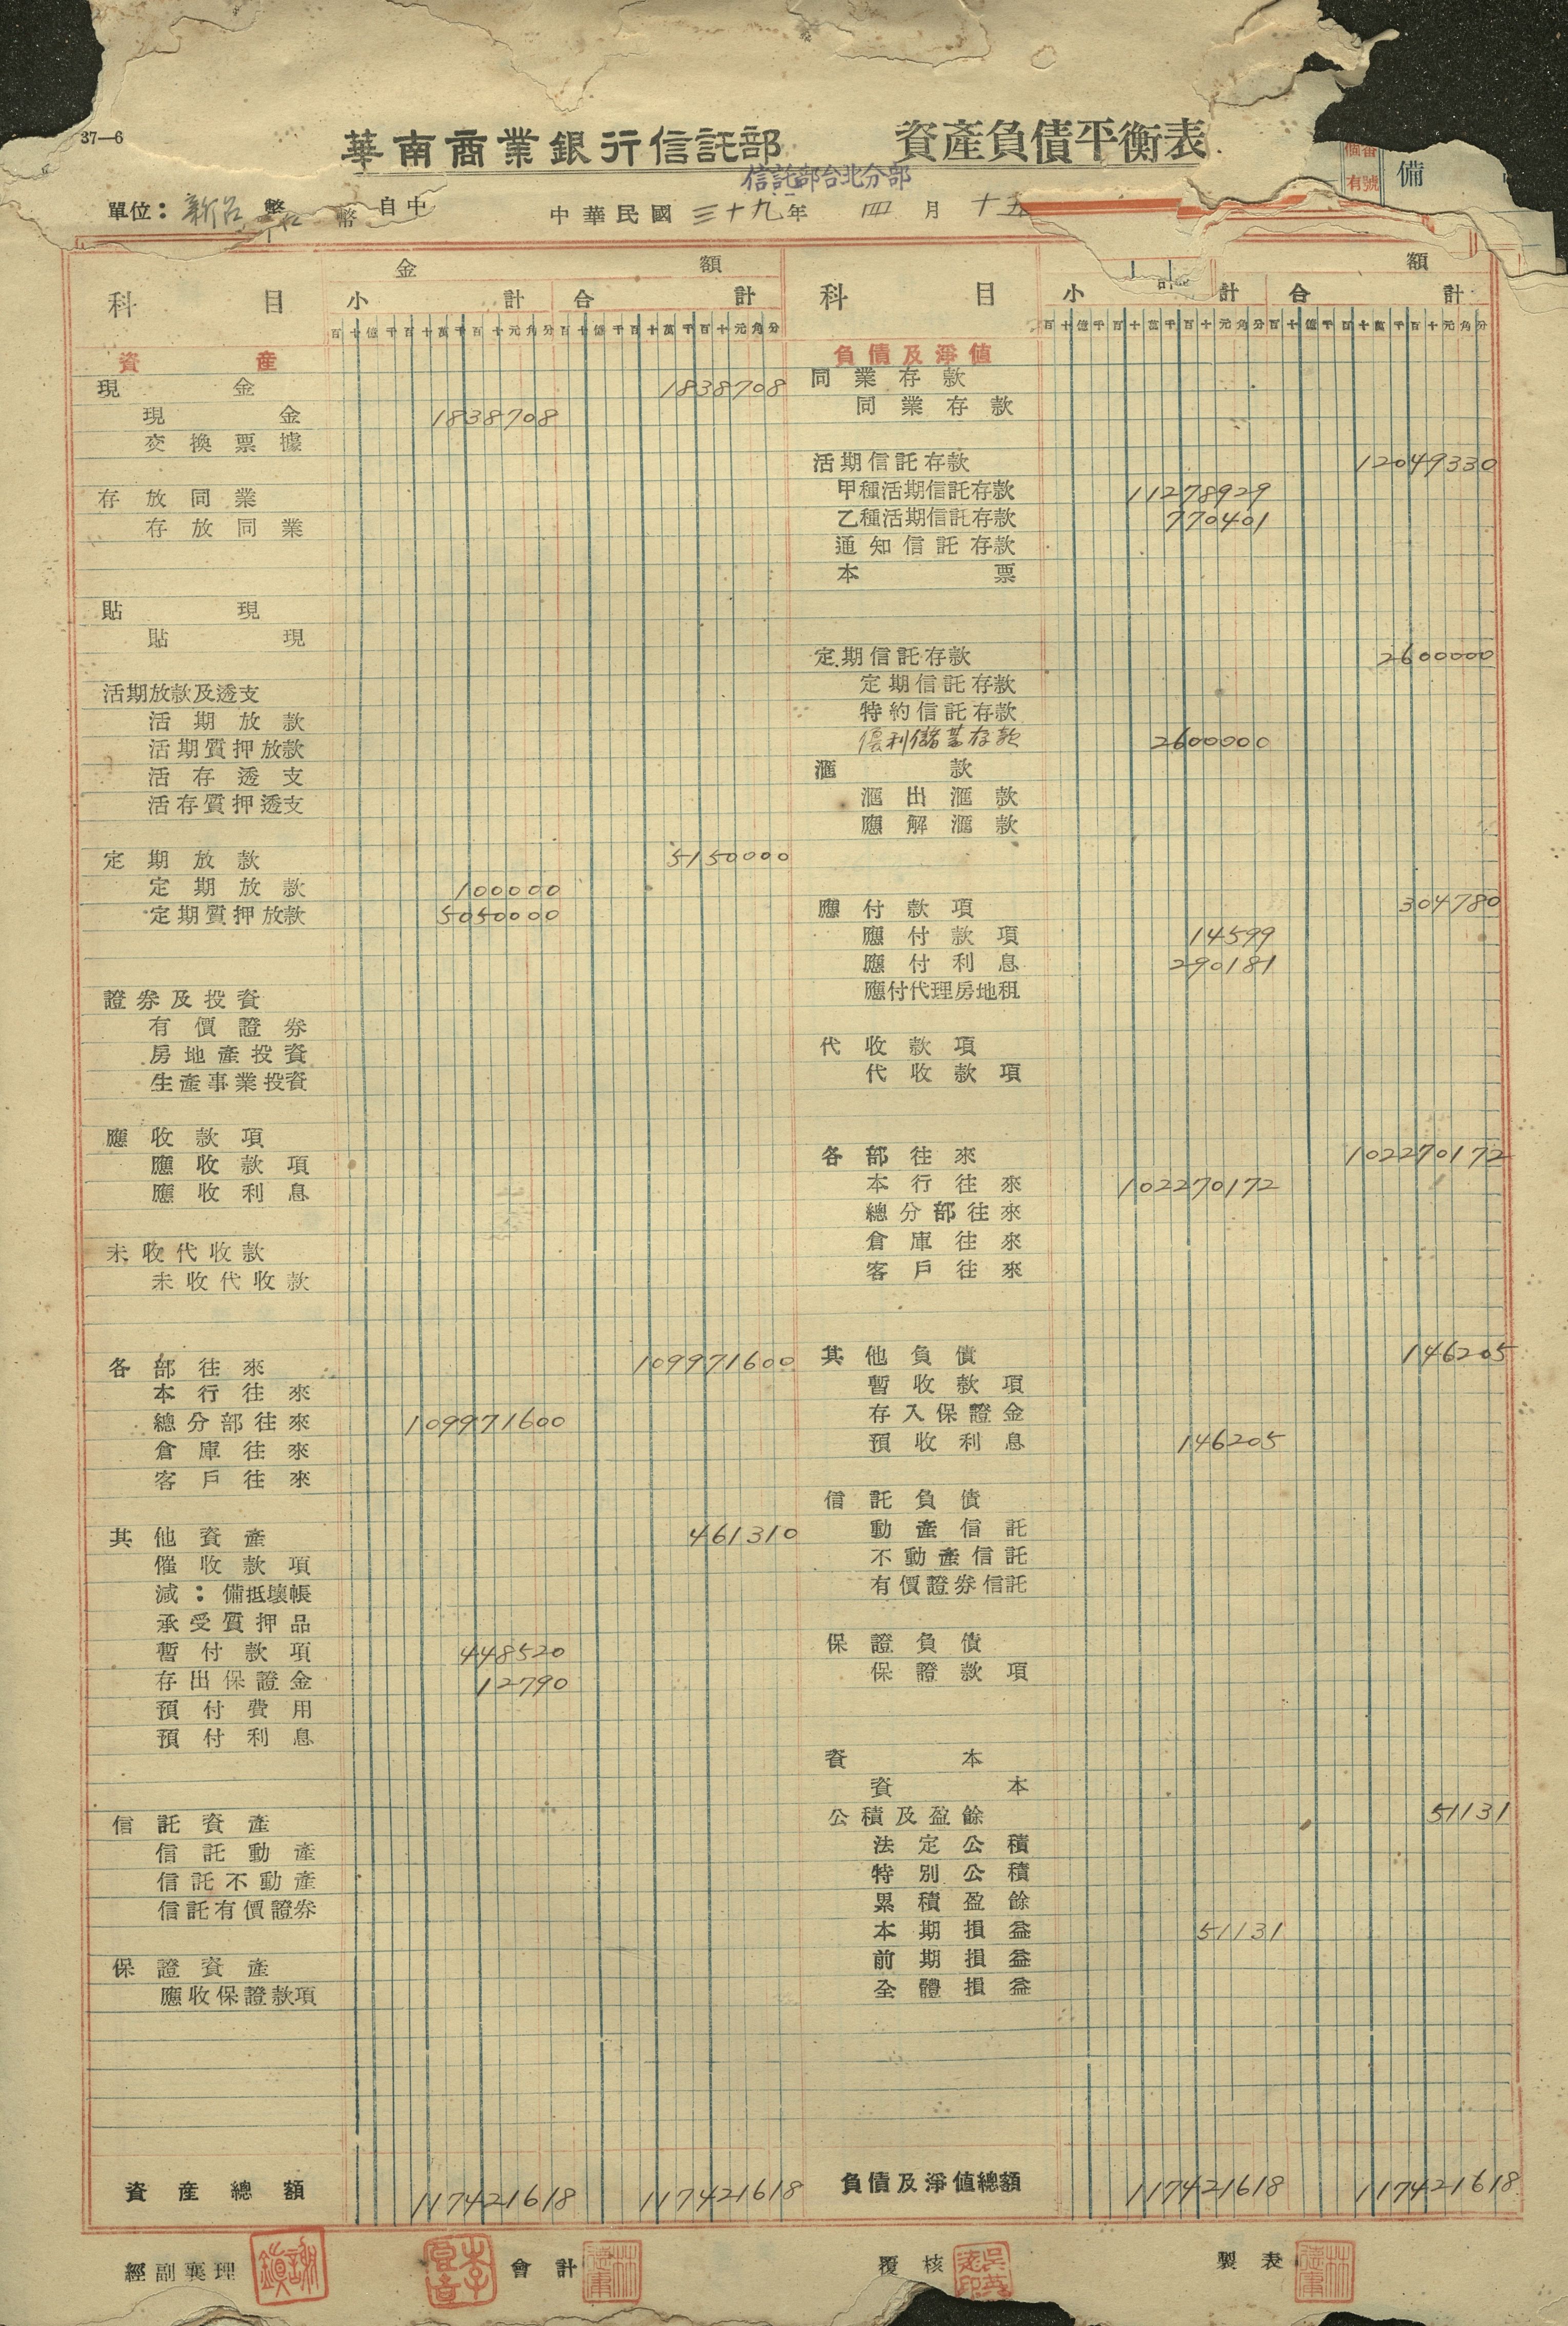 37—6
華南商業銀行信託部 資產負債平衡表
信託部台北分部
備
有號
單位：新台幣 幣 自中 中華民國三十九年 四月十五
科目 金額 科目 額
小計 合計 小計 合計
百十億千百十萬千百十元角分 百十億千百十萬千百十元角分 百十億千百十萬千百十元角分 百十億千百十萬千百十元角分
資產
現金 1838708
現金 1838708
交換票據
存放同業
存放同業
貼現
貼現
活期放款及透支
活期放款
活期質押放款
活存透支
活存質押透支
定期放款 5150000
定期放款 100000
定期質押放款 5050000
證券及投資
有價證券
房地產投資
生產事業投資
應收款項
應收款項
應收利息
未收代收款
未收代收款
各部往來 109971600
本行往來
總分部往來 109971600
倉庫往來
客戶往來
其他資產 461310
催收款項
減：備抵壞帳
承受質押品
暫付款項 448520
存出保證金 12790
預付費用
預付利息
信託資產
信託動產
信託不動產
信託有價證券
保證資產
應收保證款項
資產總額 117421618 117421618
負債及淨值
同業存款
同業存款
活期信託存款 12049330
甲種活期信託存款 11278929
乙種活期信託存款 770401
通知信託存款
本票
定期信託存款 2600000
定期信託存款
特約信託存款
優利儲蓄存款 2600000
滙款
滙出滙款
應解滙款
應付款項 304780
應付款項 14599
應付利息 290181
應付代理房地租
代收款項
代收款項
各部往來 102270172
本行往來 102270172
總分部往來
倉庫往來
客戶往來
其他負債 146205
暫收款項
存入保證金
預收利息 146205
信託負債
動產信託
不動產信託
有價證券信託
保證負債
保證款項
資本
資本
公積及盈餘 51131
法定公積
特別公積
累積盈餘
本期損益 51131
前期損益
全體損益
負債及淨值總額 117421618 117421618
經副襄理 會計 覆核 製表